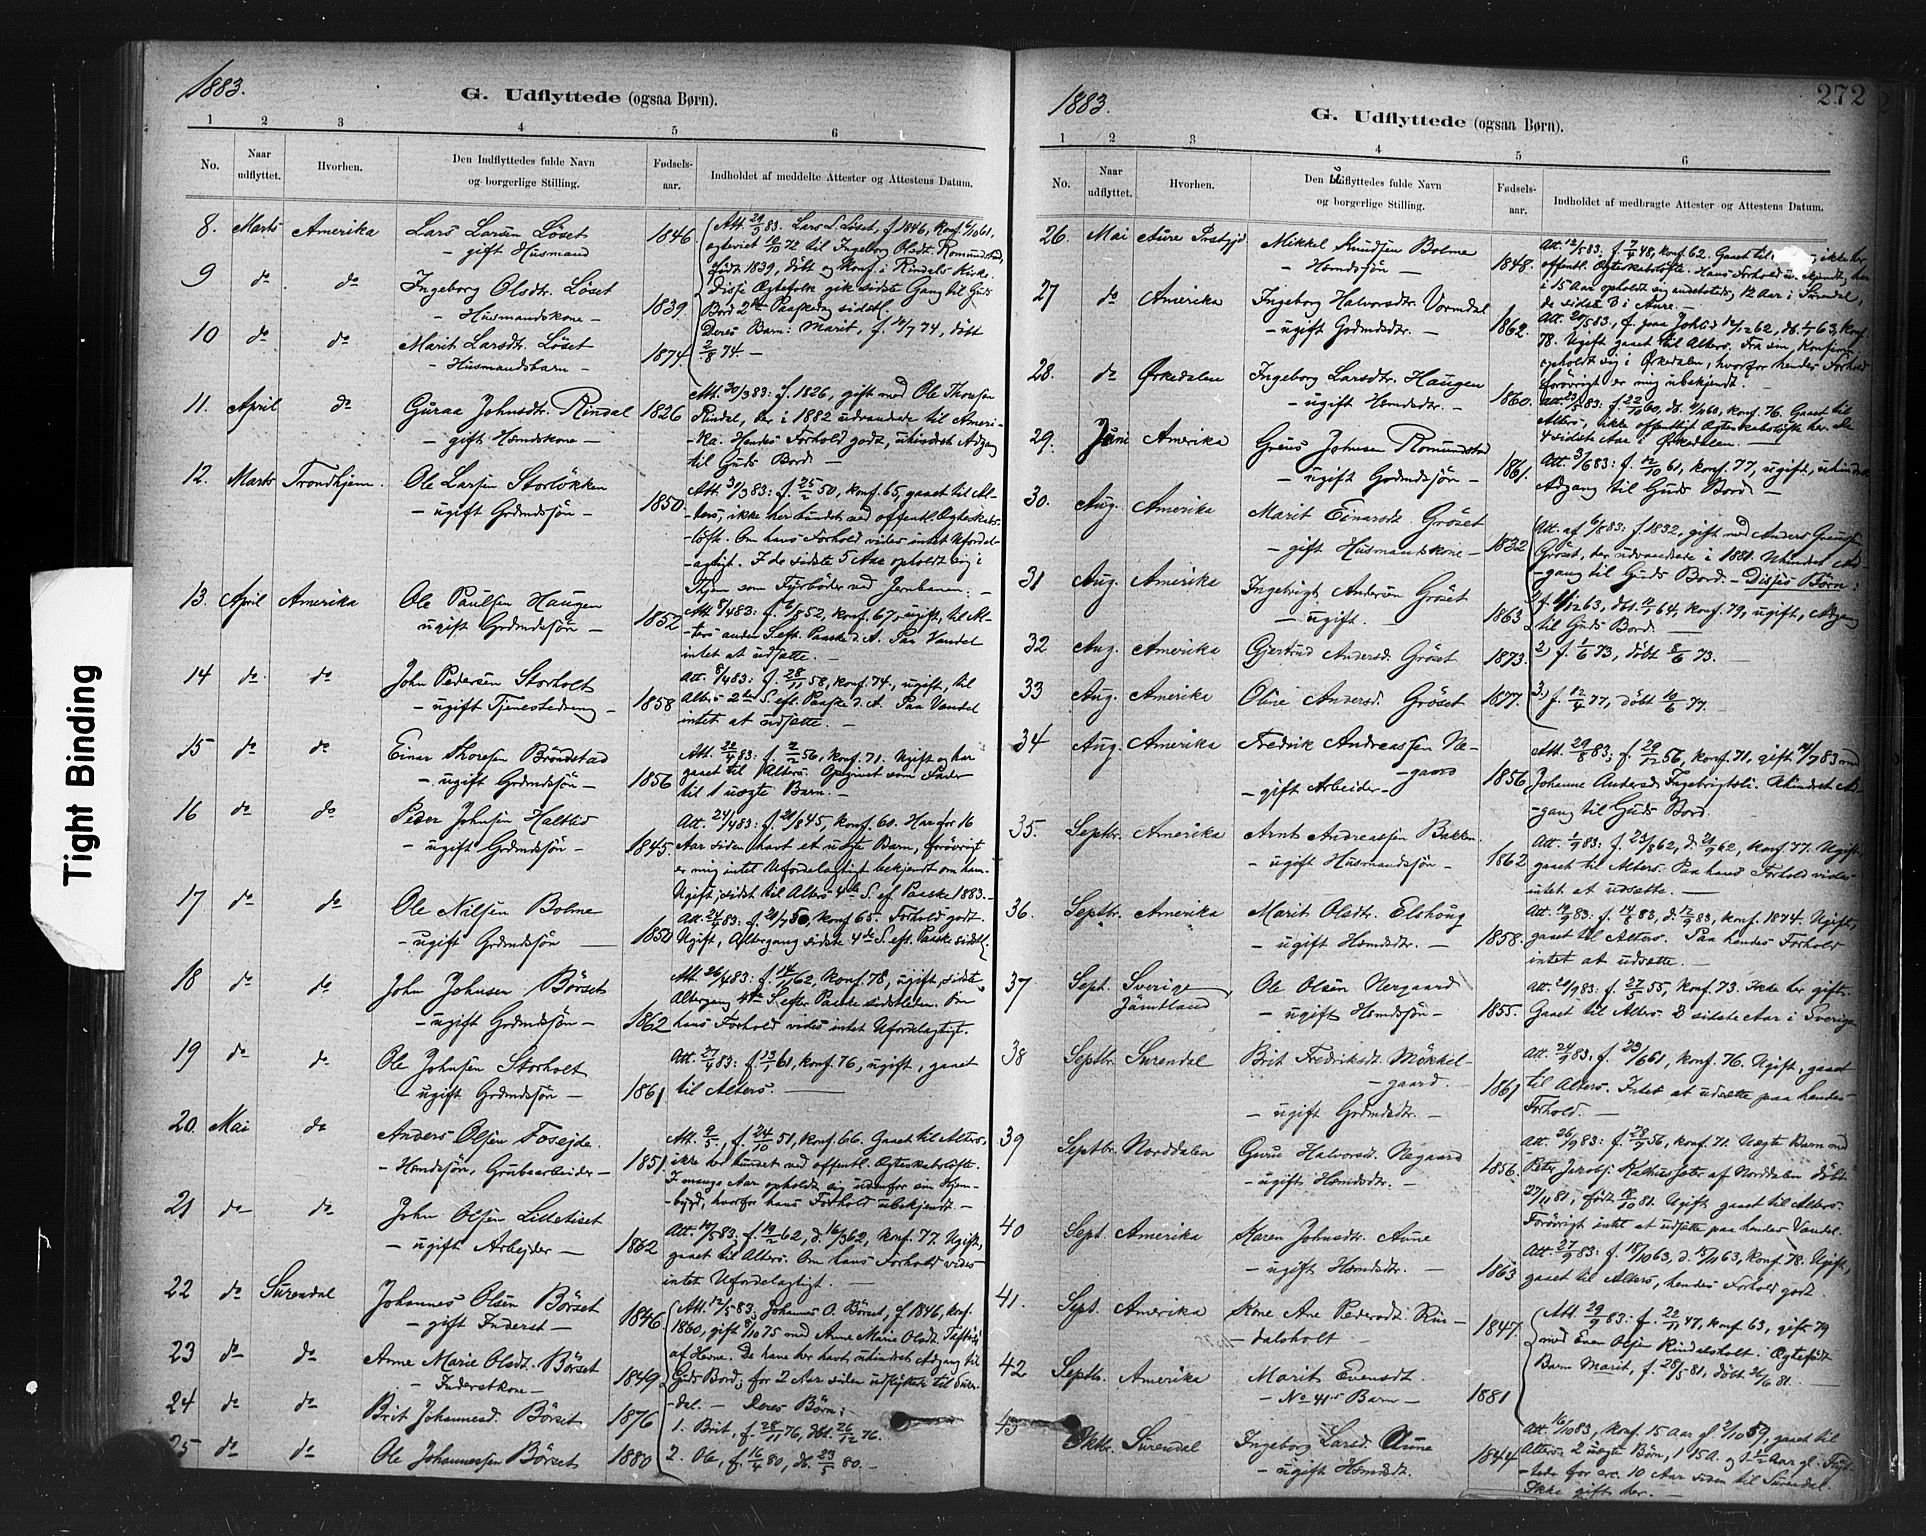 1883.
G. Udflyttede (ogsaa Børn).
1 2 3 4 5 6
No. Naar udflyttet. Hvorhen. Den Indflyttedes fulde Navn og borgerlige Stilling. Fødsels-aar. Indholdet af meddelte Attester og Attestens Datum.
8. Marts Amerika Lars Larsen Löset 1846
- gift Husmand
Att. 29/9 83. Lars L. Löset, f. 1846, Konf. 61,
til Ingeborg Olsdt. Romundstad,
født 1839, döbt og Konf. i Rindals Kirke.
Disse Ægtefolk gik sidste Gang til Guds
Bord 2den Paaskedag sidstl.
9 do do Ingeborg Olsdtr. Löset 1839
- Husmandskone -
10 do do Marit Larsdtr. Löset 1874
- Husmandsbarn -
Deres Barn: Marit, f. 12/7 74, döbt
2/8 74 -
11. April do Guraa Johnsdtr. Rindal 1826
- gift Hemdskone -
Att. 30/3 83: f. 1826, gift med Ole Thoresen
Rindal, der i 1882 udvandrede til Ameri-
-ka. Hendes Forhold godt, uhindret Adgang
til Guds Bord. -
12. Marts Trondhjem. Ole Larsen Storlökken 1850
- ugift Grdmdssön -
Att. 31/3 83: f. 25/2 50, konf. 65, gaaet til Al-
-ters, ikke her bundet ved offentl. Ægteskabs-
-löfte. Om hans Forhold vides intet Ufordel-
-agtigt. I de sidste 5 Aar opholdt sig i
Thjem som Fyrböder ved Jernbanen. -
13. April Amerika Ole Paulsen Haugen 1852
ugift Grdmdssön -
konf. 67, ugift, til Al-
-ters anden S. eft. Paaske d. A. Paa Vandel
intet at udsætte. -
14 do do John Pedersen Storholt 1858
- ugift Tjenestedreng -
Att. 8/4 83: f. 28/11 58, konf. 74, ugift, til
Alters 2den S. eft. Paaske d. A. Paa Vandel
intet at udsætte. -
15 do do Einar Thoresen Bröndstad 1856
- ugift Grdmdssön -
Att. 22/4 83: f. 2/2 56, konf. 71. Ugift og har
gaaet til Alters. Opgivet som Fader
til 1 uægte Barn. -
16 do do Peder Johnsen Haltlid 1845.
- ugift Grdmdssön -
Att. 24/4 83: konf. 60. Har for 16
Aar siden havt et uægte Barn, forövrigt
er mig intet Ufordelagtigt bekjendt om ham.
Ugift, sidst til Alters 4de S. ef. Paaske 1883. -
17 do do Ole Nilsen Bolme 1850
- ugift Grdmdssön -
Att. 24/4 83: konf. 65. Forhold godt.
Ugift, Altergang sidste 4de S. eft. Paaske sidstl.
18 do do John Johnsen Börset 1862
- ugift Grdmdssön -
Att. 26/4 83: f. 14/1 62, konf. 78, ugift, sidste
Altergang 4de S. efter Paaske sidstleden. Om
hans Forhold vides intet Ufordelagtigt.
19 do do Ole Johnsen Storholt 1861
- ugift Grdmdssön -
Att. 27/4 83: f. 13/1 61, konf. 76, ugift, gaaet
til Alters. -
20. Mai do Anders Olsen Fosejde 1851
- Hemdssön, Grubearbeider -
Att. 9/5, f. 24/10 51, konf. 66. Gaaet til Alters.
ikke her bundet ved offentl. Ægteskabslöfte.
I mange Aar opholdt sig udenfor sin Hjem-
-bygd, hvorfor hans Forhold ubekjendt. -
21 do do John Olsen Lilletiset 1862
- ugift Arbejder -
Att. 10/5 83: f. 19/2 62, d. 16/3 62, konf. 77. Ugift,
gaaet til Alters. Om hans Forhold vides
intet Ufordelagtigt. -
22 do Surendal Johannes Olsen Börset 1846
- gift Inderst -
Att. 12/5 83: Johannes O. Börset, f. 1846, konf.
1860, gift 75 med Anne Marie Olsdt.
af Hevne. De have her havt uhindret Adgang til
Guds Bord; for 2 Aar siden udflyttede til Suren-
-dal. - Deres Börn:
23 do do Anne Marie Olsdt. Börset 1849
- Inderstkone -
24 do do Brit Johannesd. Börset 1876
1. Brit, f. 28/11 76, döbt. 26/12 76.
25 do do Ole Johannessen Börset 1880
2. Ole, f. 16/4 80, d. 23/5 80. -
Tight Binding
1883.
272
G. Udflyttede (ogsaa Børn).
1 2 3 4 5 6
No. Naar udflyttet. Hvorhen. Den Udflyttedes fulde Navn og borgerlige Stilling. Fødsels-aar. Indholdet af medbragte Attester og Attestens Datum.
26. Mai Aure Prstgjd. Mikkel Knudsen Bolme 1848.
- Hemdssön -
Att. 12/5 83, f. 7/4 48, konf. 62. Gaaet til ikke her
offentl. Ægteskabslöfte. Hans Forhold ubekjendt, har
i 15 Aar opholdt sig andetsteds, 12 Aar i Surendal,
de sidste 3 i Aure.
27 do Amerika Ingeborg Halvorsdtr. Vormdal 1862.
- ugift Grdmdsdtr. -
78. Ugift gaaet til Alters. Fra sin Konfirm.
opholdt sig i Örkedalen, hvorfor hendes Forhold
forövrigt er mig ubekjendt. -
28. do Örkedalen Ingeborg Larsdtr. Haugen 1860.
- ugift Hemdsdtr. -
konf. 76. Gaaet til
Alters, ikke offentligt Ægteskabslöfte her. De
4 sidste Aar i Örkedalen. -
29. Juni Amerika Greus Johnsen Romundstad 1861.
- ugift Grdmdssön -
Att. 3/6 83: f. 12/10 61, konf. 77, ugift, uhindret
Adgang til Guds Bord. -
30. Aug. Amerika Marit Einarsdt. Gröset 1832
- gift Husmandskone -
Att. af 6/8 83: f. 1832, gift med Anders
Gröset, der udvandrede i 1881. Uhindret Ad-
-gang til Guds Bord. - Disses Börn:
31 Aug. Amerika Ingebrigt Andersen Gröset 1863
- ugift.
konf. 79, ugift, Adgang
til Guds Bord. -
32 Aug. Amerika Gjertrud Andersd. Gröset 1873.
2) f. 1/6 73, döbt 8/6 73. -
33 Aug. Amerika Oline Andersd. Gröset 1877.
3) f. 12/4 77, döbt 10/6 77. -
34 Aug. Amerika Fredrik Andreassen Ne- 1856
-gaard
- gift Arbeider -
Att. 29/8 83; f. 29/12 56, konf. 71, gift 83 med
Johanne Andersd. Ingebrigtsli. Uhindret Ad-
-gang til Guds Bord.
35. Septbr. Amerika Arnt Andreassen Bakken 1862
- ugift Husmandssön -
Att. 1/9 83: f. 23/8 62, d. 21/9 62, konf. 77. Ugift,
gaaet til Alters. Paa hans Forhold vides
intet at udsætte. -
36. Septbr. Amerika Marit Olsdtr. Elshoug 1858.
- ugift Hemdsdtr. -
Att. 19/9 83: f. 14/8 83, d. 12/9 83, konf. 1874. Ugift,
gaaet til Alters. Paa hendes Forhold
intet at udsætte. -
37 Sept. Sverige, Jämtland Ole Olsen Nergaard 1855.
- ugift Hemdssön -
Att. 20/9 83: f. 27/5 55, konf. 73. Ikke her gift.
Gaaet til Alters. 3 sidste Aar i Sverige
38 Septbr. Surendal Brit Fredriksdt. Mökkel- 1861
-gaard.
- ugift Grdmdsdtr. -
Att. 24/9 83: f. 23/6 61, konf. 76. Ugift, gaaet
til Alters. Intet at udsætte paa hendes
Forhold. -
39 Septbr. Norddalen Guru Halvorsd. Negaard 1856.
- ugift Hemdsdtr. -
Att. 26/9 83: f. 28/9 56, konf. 71. Uægte Barn med
Peter Jacobs. af Norddalen döbt
27/11 81, født 81. Ugift gaaet til Alters.
Forövrigt intet at udsætte paa hendes Vandel.
40 Sept. Amerika Karen Johnsdtr. Aune 1863
- ugift Hemdsdtr. -
Att. 27/9 83: f. 18/10 63, d. 15/11 63, konf. 78. Ugift,
gaaet til Alters, hendes Forhold godt.
41. Sept. Amerika Kone Ane Pedersdt. Rin- 1847.
-dalsholt -
Att. 29/9 83: f. 22/11 47, konf. 63, gift 79
med Even Olsen Rindalsholt. Ægtefødt
Barn Marit, f. 28/5 81, döbt 26/6 81.
42 Septbr. Amerika Marit Evensdt. 1881
- No 41s Barn -
43 Oktbr. Surendal Ingeborg Larsd. Aune 1844
- ugift Hemdsdtr.
Att. 16/10 83, konf. 15 Aar gl. 2/10 59, gaaet til
Alters. 2 uægte Börn, 1 15 A. og 1 1 1/2 Aar gl. Flyt-
-tede for circ. 10 Aar siden til Surendal.
Ikke gift her. -